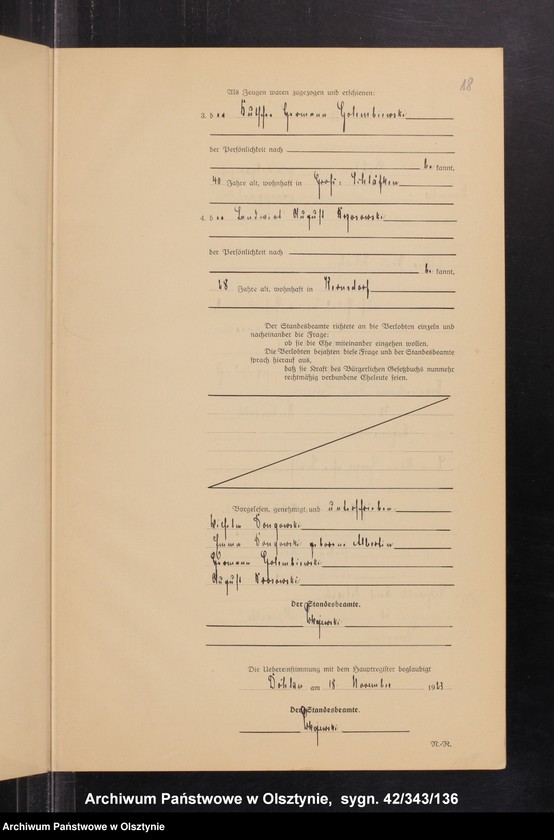 18
Als Zeugen waren zugezogen und erschienen:
3. der Kutscher Hermann Golembiewski
der Persönlichkeit nach
be kannt,
40 Jahre alt, wohnhaft in Groß-Schläfken
4. der Landwirt August
der Persönlichkeit nach
be kannt,
28 Jahre alt, wohnhaft in Kernsdorf
Der Standesbeamte richtete an die Verlobten einzeln und
nacheinander die Frage:
ob sie die Ehe miteinander eingehen wollen.
Die Verlobten bejahten diese Frage und der Standesbeamte
sprach hierauf aus,
daß sie Kraft des Bürgerlichen Gesetzbuchs nunmehr
rechtmäßig verbundene Eheleute seien.
Vorgelesen, genehmigt und unterschrieben
Wilhelm Dongowski
Emma Dongowski geborene Albertin
Hermann Golembiewski
August
Der Standesbeamte.
Die Uebereinstimmung mit dem Hauptregister beglaubigt
Döhlau am 18. November 1923
Der Standesbeamte.
N.-R.
Archiwum Państwowe w Olsztynie, sygn. 42/343/136
Archiwum Państwowe w Olsztynie